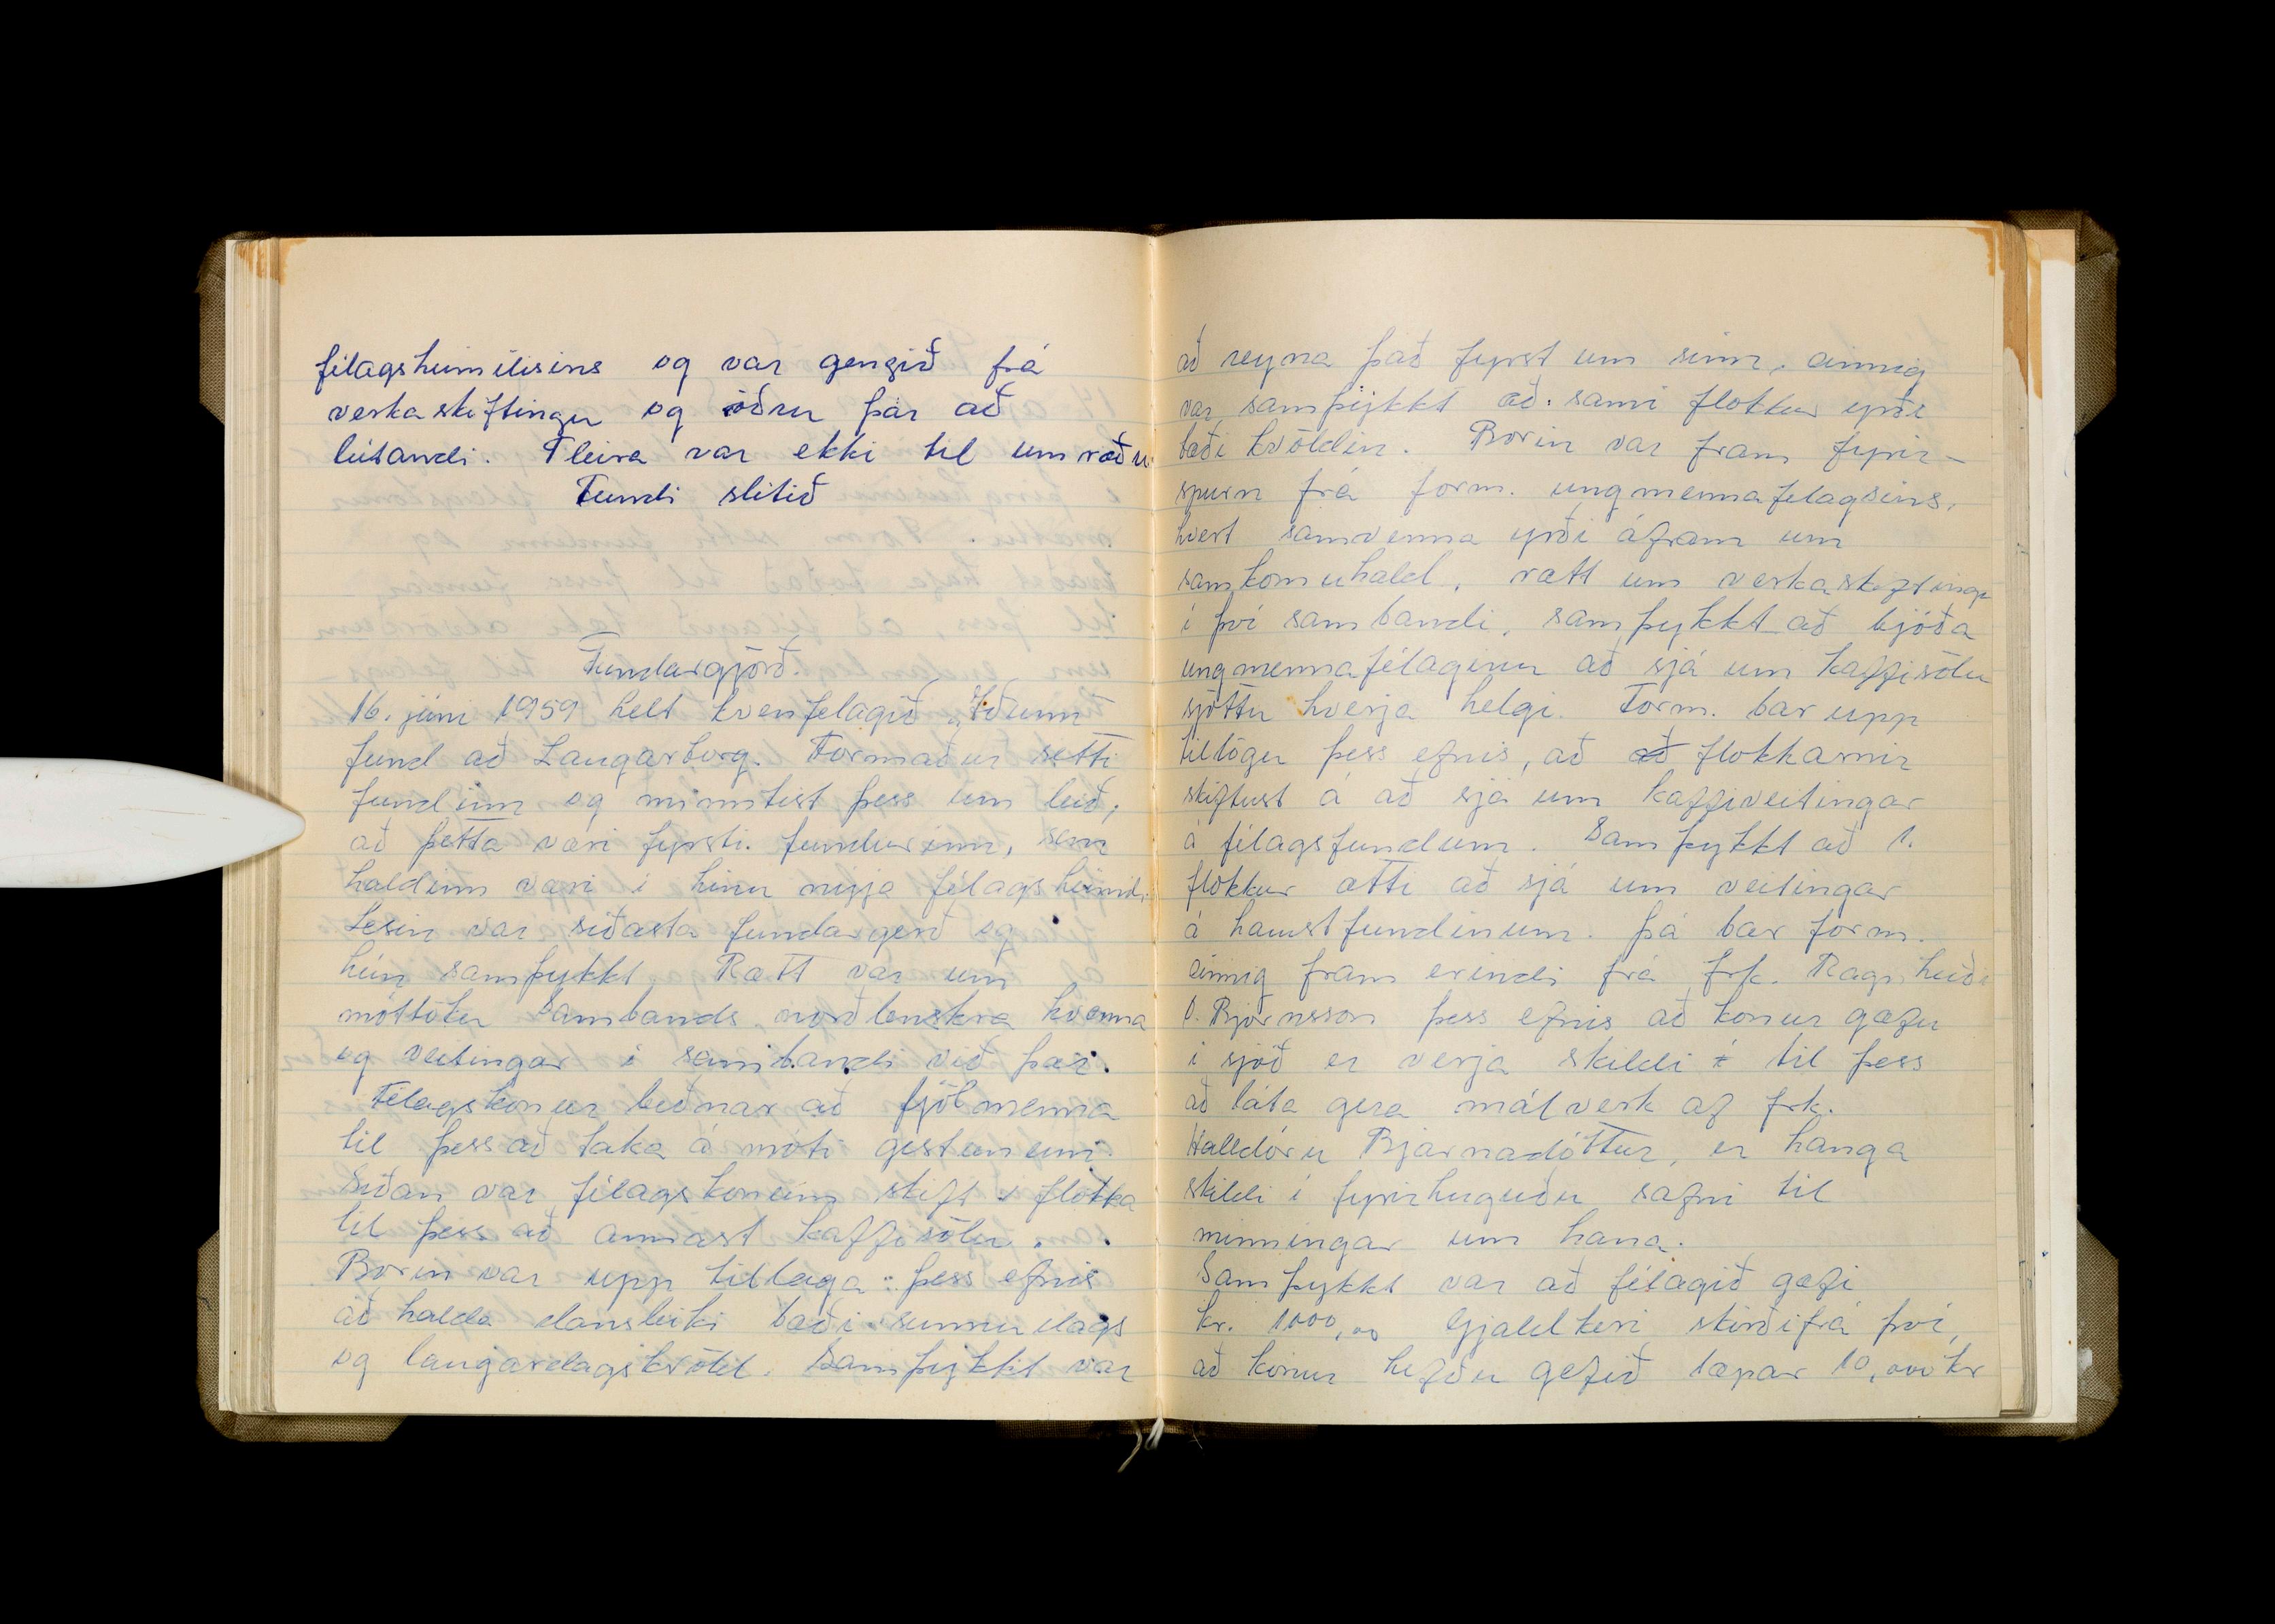 félagsheimilisins og var gengið frá
verkaskiftingu og öðru þar að
lútandi. Fleira var ekki til umræðu
Fundi slitið
Fundargjörð.
16. júni 1959 helt kvenfelagið „Iðunn"
fund að Laugarborg. Formaður setti
fundinn og minntist þess um leið,
að þetta væri fyrsti fundurinn, sem
haldinn væri í hinu nýja félagsheimili.
Lesin var síðasta fundargerð og
hún samþykkt. Rætt var um
móttöku Sambands norðlenskra kvenna
og veitingar í sambandi við þær.
Félagskonur beðnar að fjölmenna
til þess að taka á móti gestunum
Síðan var félagskonum skift í flokka
til þess að annast kaffisölu.
Borin var upp tillaga þess efnis
að halda dansleiki bæði sunnudags
og laugardagskvöld. Samþykkt var
að reyna það fyrst um sinn, einnig
var samþykkt að sami flokkur yrði
bæði kvöldin. Borin var fram fyrir-
spurn frá form. ungmennafelagsins,
hvert samvenna yrði áfram um
samkomuhald, rætt um verkaskiftingu
í því sambandi, samþykkt að bjóða
ungmennafélaginu að sjá um kaffisölu
sjöttu hverja helgi. Form. bar upp
tillögu þess efnis, að að flokkarnir
skiftust á að sjá um kaffiveitingar
á félagsfundum. Samþykkt að 1.
flokkur ætti að sjá um veitingar
á haustfundinum. Þá bar form.
einnig fram erindi frá frk. Ragnheiði
O. Björnsson þess efnis að konur gæfu
í sjóð er verja skildi í til þess
að láta gera málverk af frk.
Halldóru Bjarnadóttur, er hanga
skildi í fyrirhuguðu safni til
minningar um hana.
Samþykkt var að félagið gæfi
kr. 1000,00 Gjaldkeri skírði frá því,
að konur hefðu gefið tæpar 10,000 kr